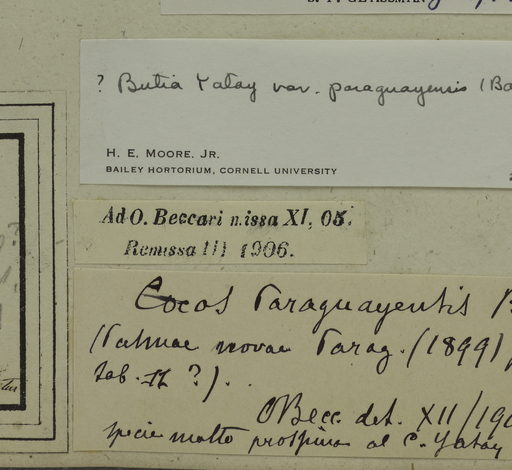 ? Butia Yatay var. paraguayensis (Ba
H. E. MOORE, JR.
BAILEY HORTORIUM, CORNELL UNIVERSITY
Ad O. Beccari missa XI, 05.
Remissa III 1906.
Cocos Paraguayensis
(Palmae novae Parag. (1899)
tab. II ?).
O Becc. det. XII/190
specie molto prossima al C. Yatay